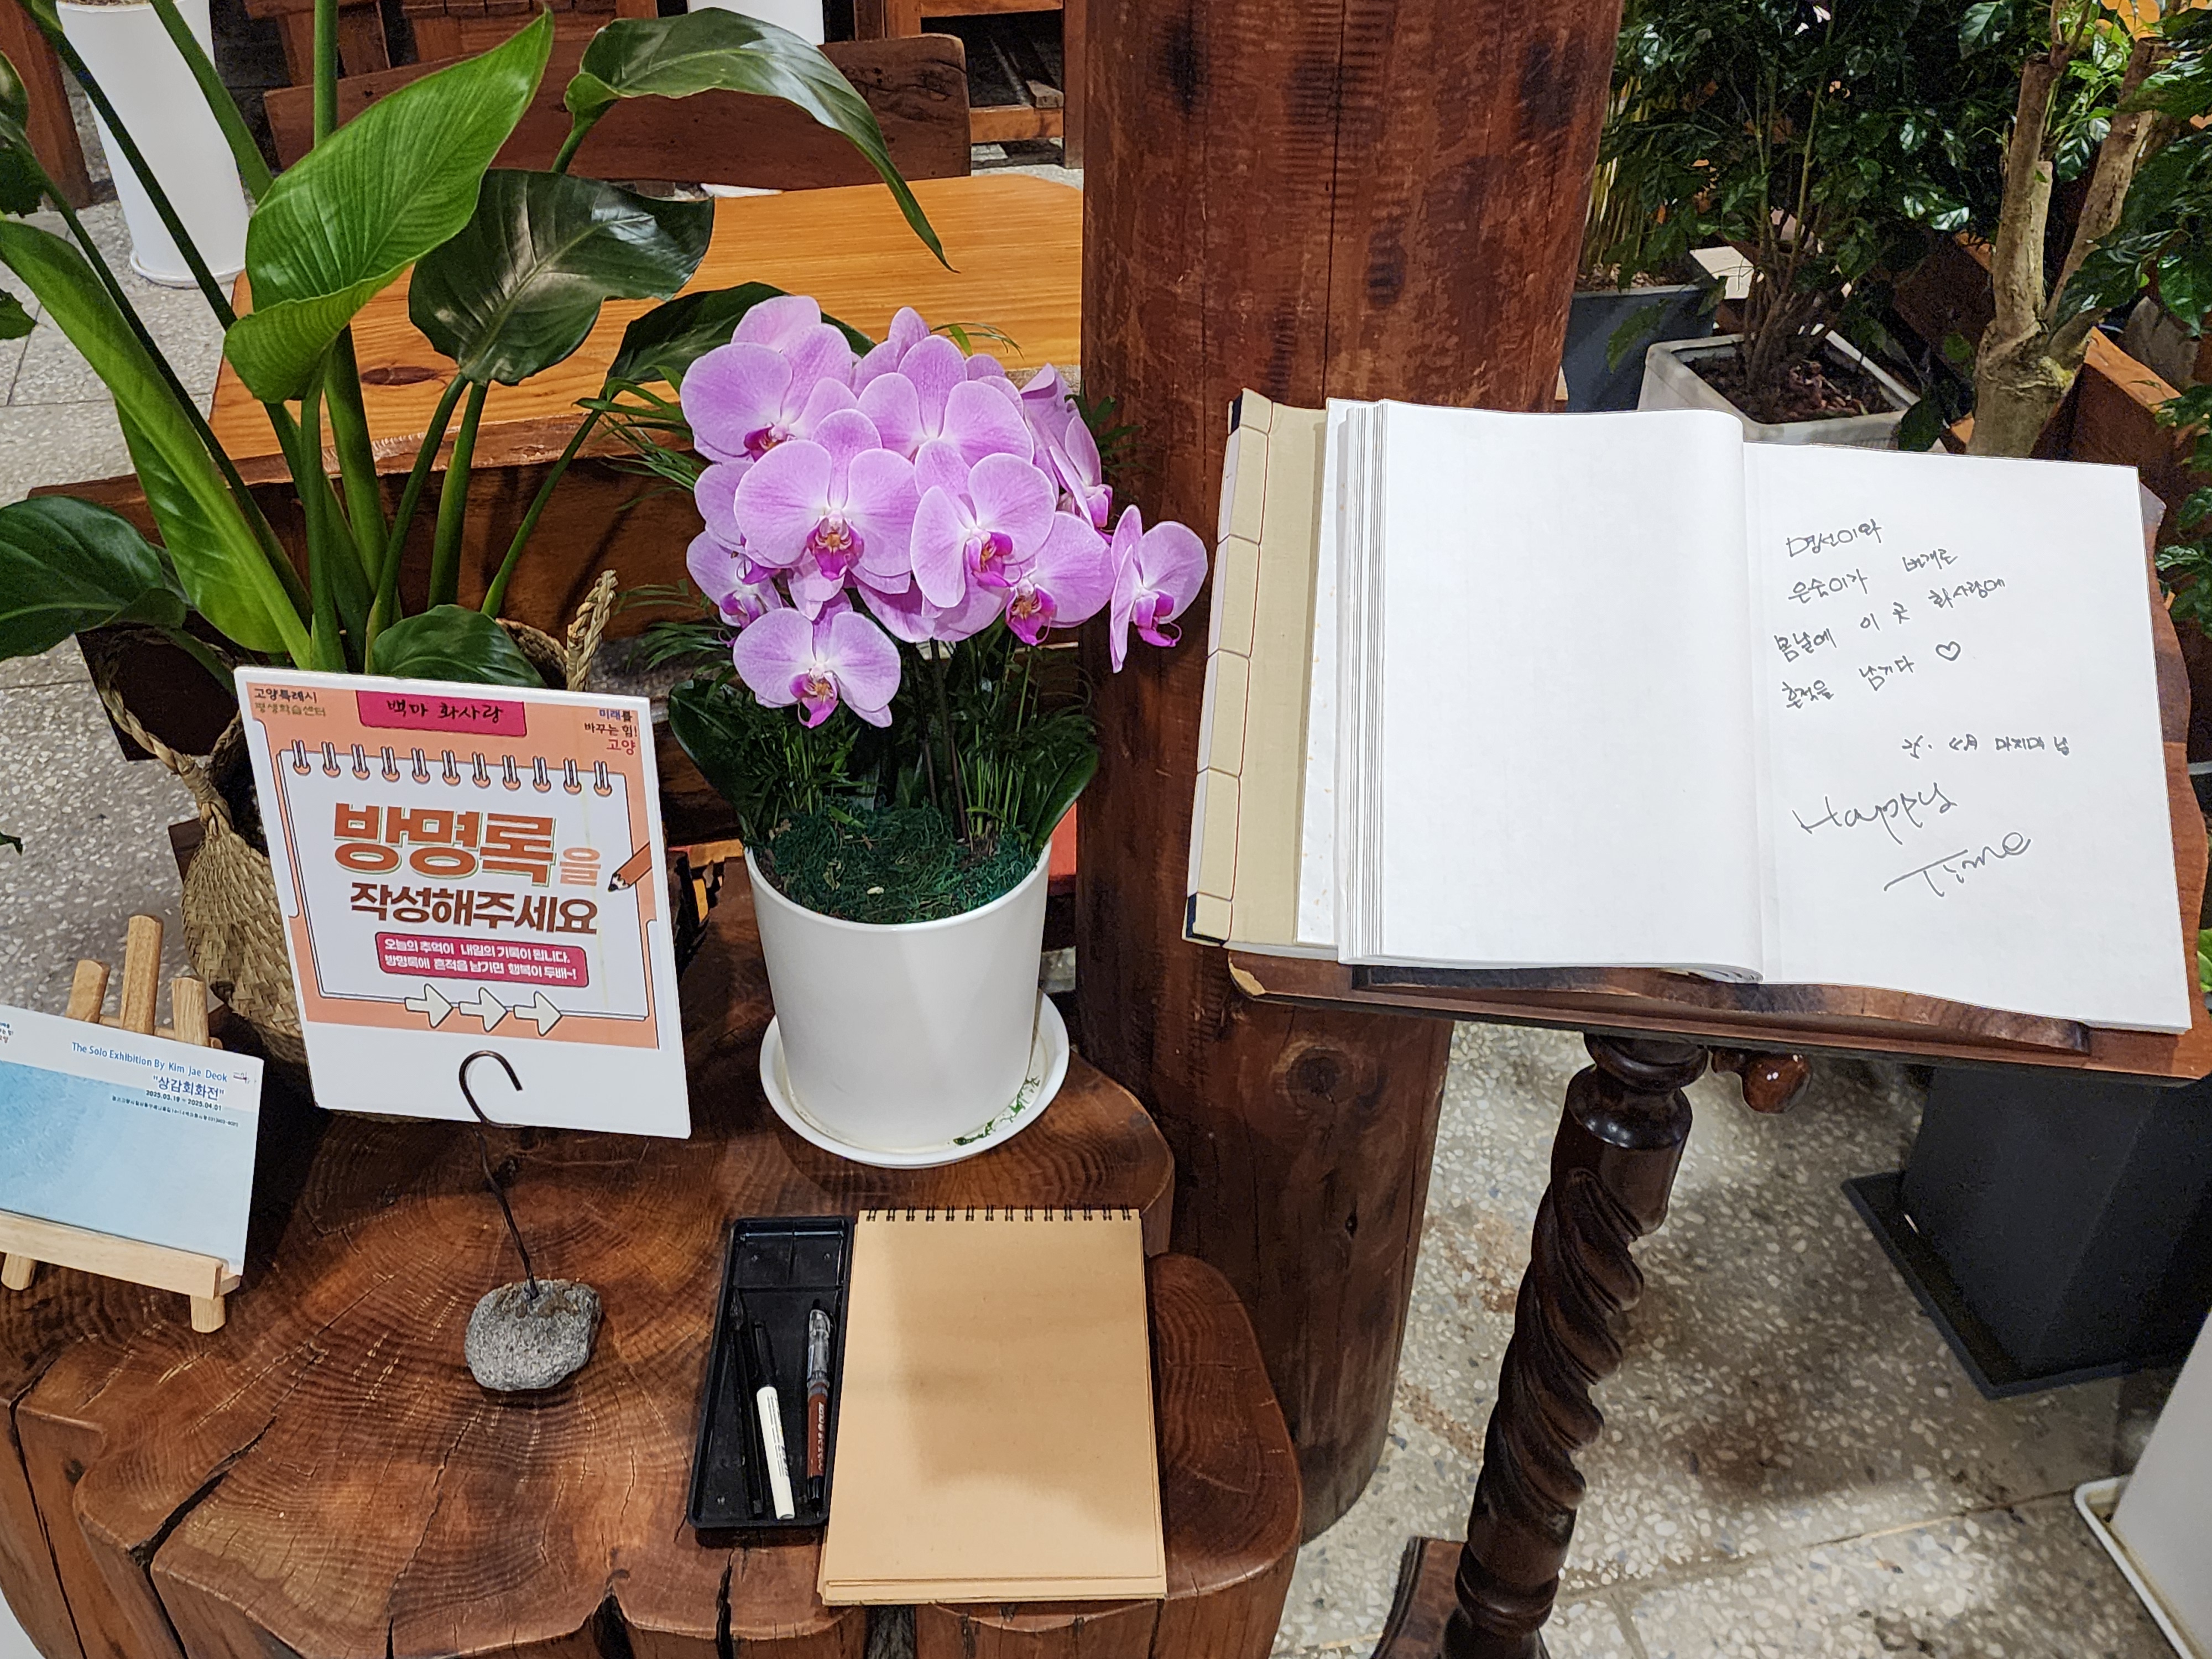 고양특례시
평생학습센터
백마 화사랑
미래를
바꾸는 힘!
고양
방명록을
작성해주세요
오늘의 추억이 내일의 기록이 됩니다.
방명록에 흔적을 남기면 행복이 두배~!
The Solo Exhibition By Kim Jae Deok
"상감회화전"
2025.03.19 ~ 2025.04.01
명선이와
은숙이가
봄날에 이 곳 화사랑에
흔적을 남기다 ♡
마지막 날
Happy
Time